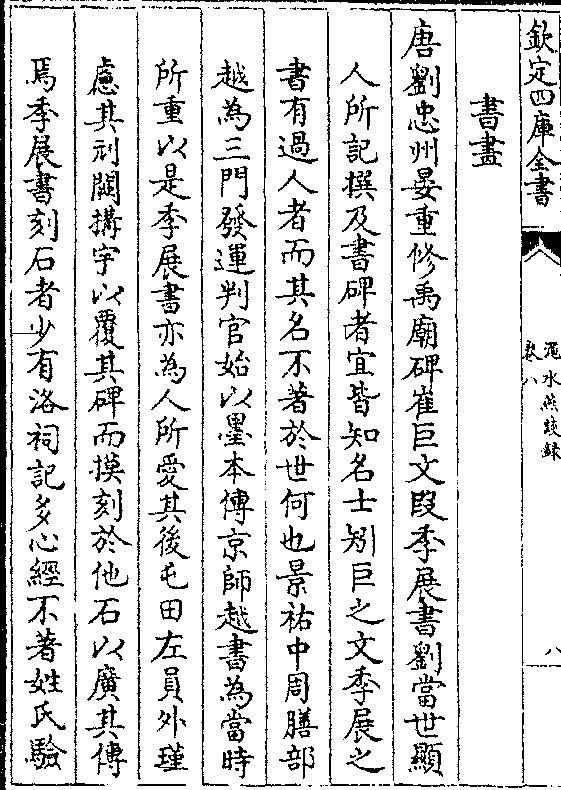 欽定四庫全書
澠水燕談錄
卷八
八
書畫
唐劉忠州晏重修禹廟碑崔巨文段季展書劉當世顯
人所記撰及書碑者宜皆知名士矧巨之文季展之
書有過人者而其名不著於世何也景祐中周膳部
越為三門發運判官始以墨本傳京師越書為當時
所重以是季展書亦為人所愛其後屯田左員外瑾
慮其刓闕搆宇以覆其碑而摸刻於他石以廣其傳
焉季展書刻石者少有洛祠記多心經不著姓氏驗